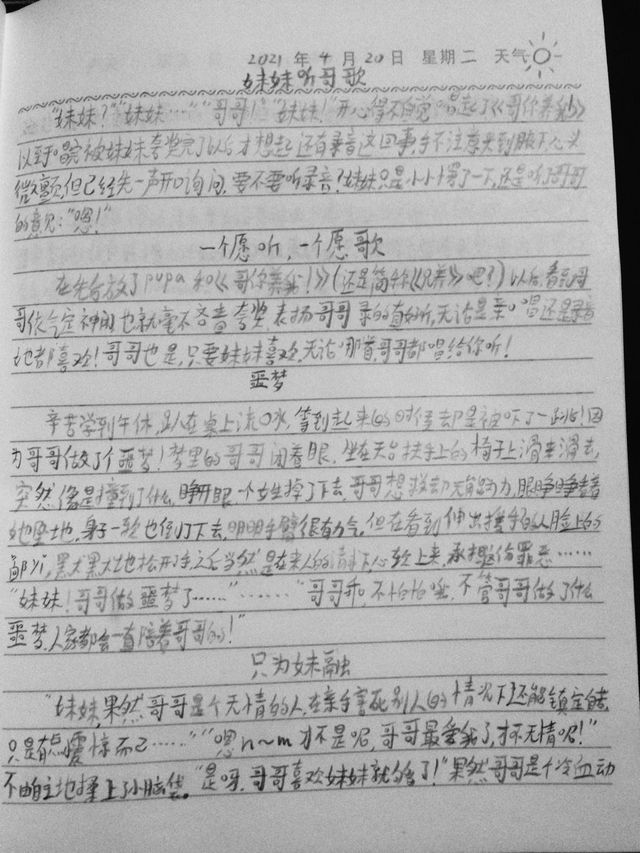 2021 年 4 月 20 日 星期二 天气
妹妹听哥歌
"妹妹?""妹妹……""哥哥!""妹妹!"开心得不自觉唱起了《哥你养我》
以至唱完被妹妹夸奖完了以后才想起还有录音这回事,手不注意夹到腋下
微颤,但已经先一声开口询问,要不要听录音?妹妹只是小小愣了一下,还是听了哥哥
的意见:"嗯!"
一个愿听,一个愿歌
在先后放了pupa和《哥你养我!》(还是简称《兄养》吧?)以后,看见哥
哥依气定神闲也就毫不吝啬夸奖,表扬哥哥录的真好听,无论是亲口唱还是录音
她都喜欢!哥哥也是,只要妹妹喜欢,无论哪首,哥哥都唱给你听!
噩梦
辛苦学到午休,趴在桌上流口水,等到起来的时候却是被吓了一跳!因
为哥哥做了个噩梦!梦里的哥哥闭着眼,坐在天台扶手上的椅子上滑来滑去,
突然像是撞到了什么,睁开眼一个女生掉了下去,哥哥想救却无能为力,眼睁睁看着
她坠地,身子一软也倒了下去,明明手臂很有力气,但在看到伸出援手的人脸上的
黑大黑大地松开了手之后当然是在来人的
"妹妹!哥哥做噩梦了……""……哥哥乖,不怕怕哦,不管哥哥做了什么
噩梦,人家都会一直陪着哥哥的!"
只为妹融
"妹妹果然哥哥是个无情的人,在亲手害死别人的情况下还能镇定自若,
只是有点震惊而已……""嗯n~m才不是呢,哥哥最爱我了,才不无情呢!"
不由自主地揉上了小脑袋。"是呀,哥哥喜欢妹妹就够了!"果然哥哥是个冷血动